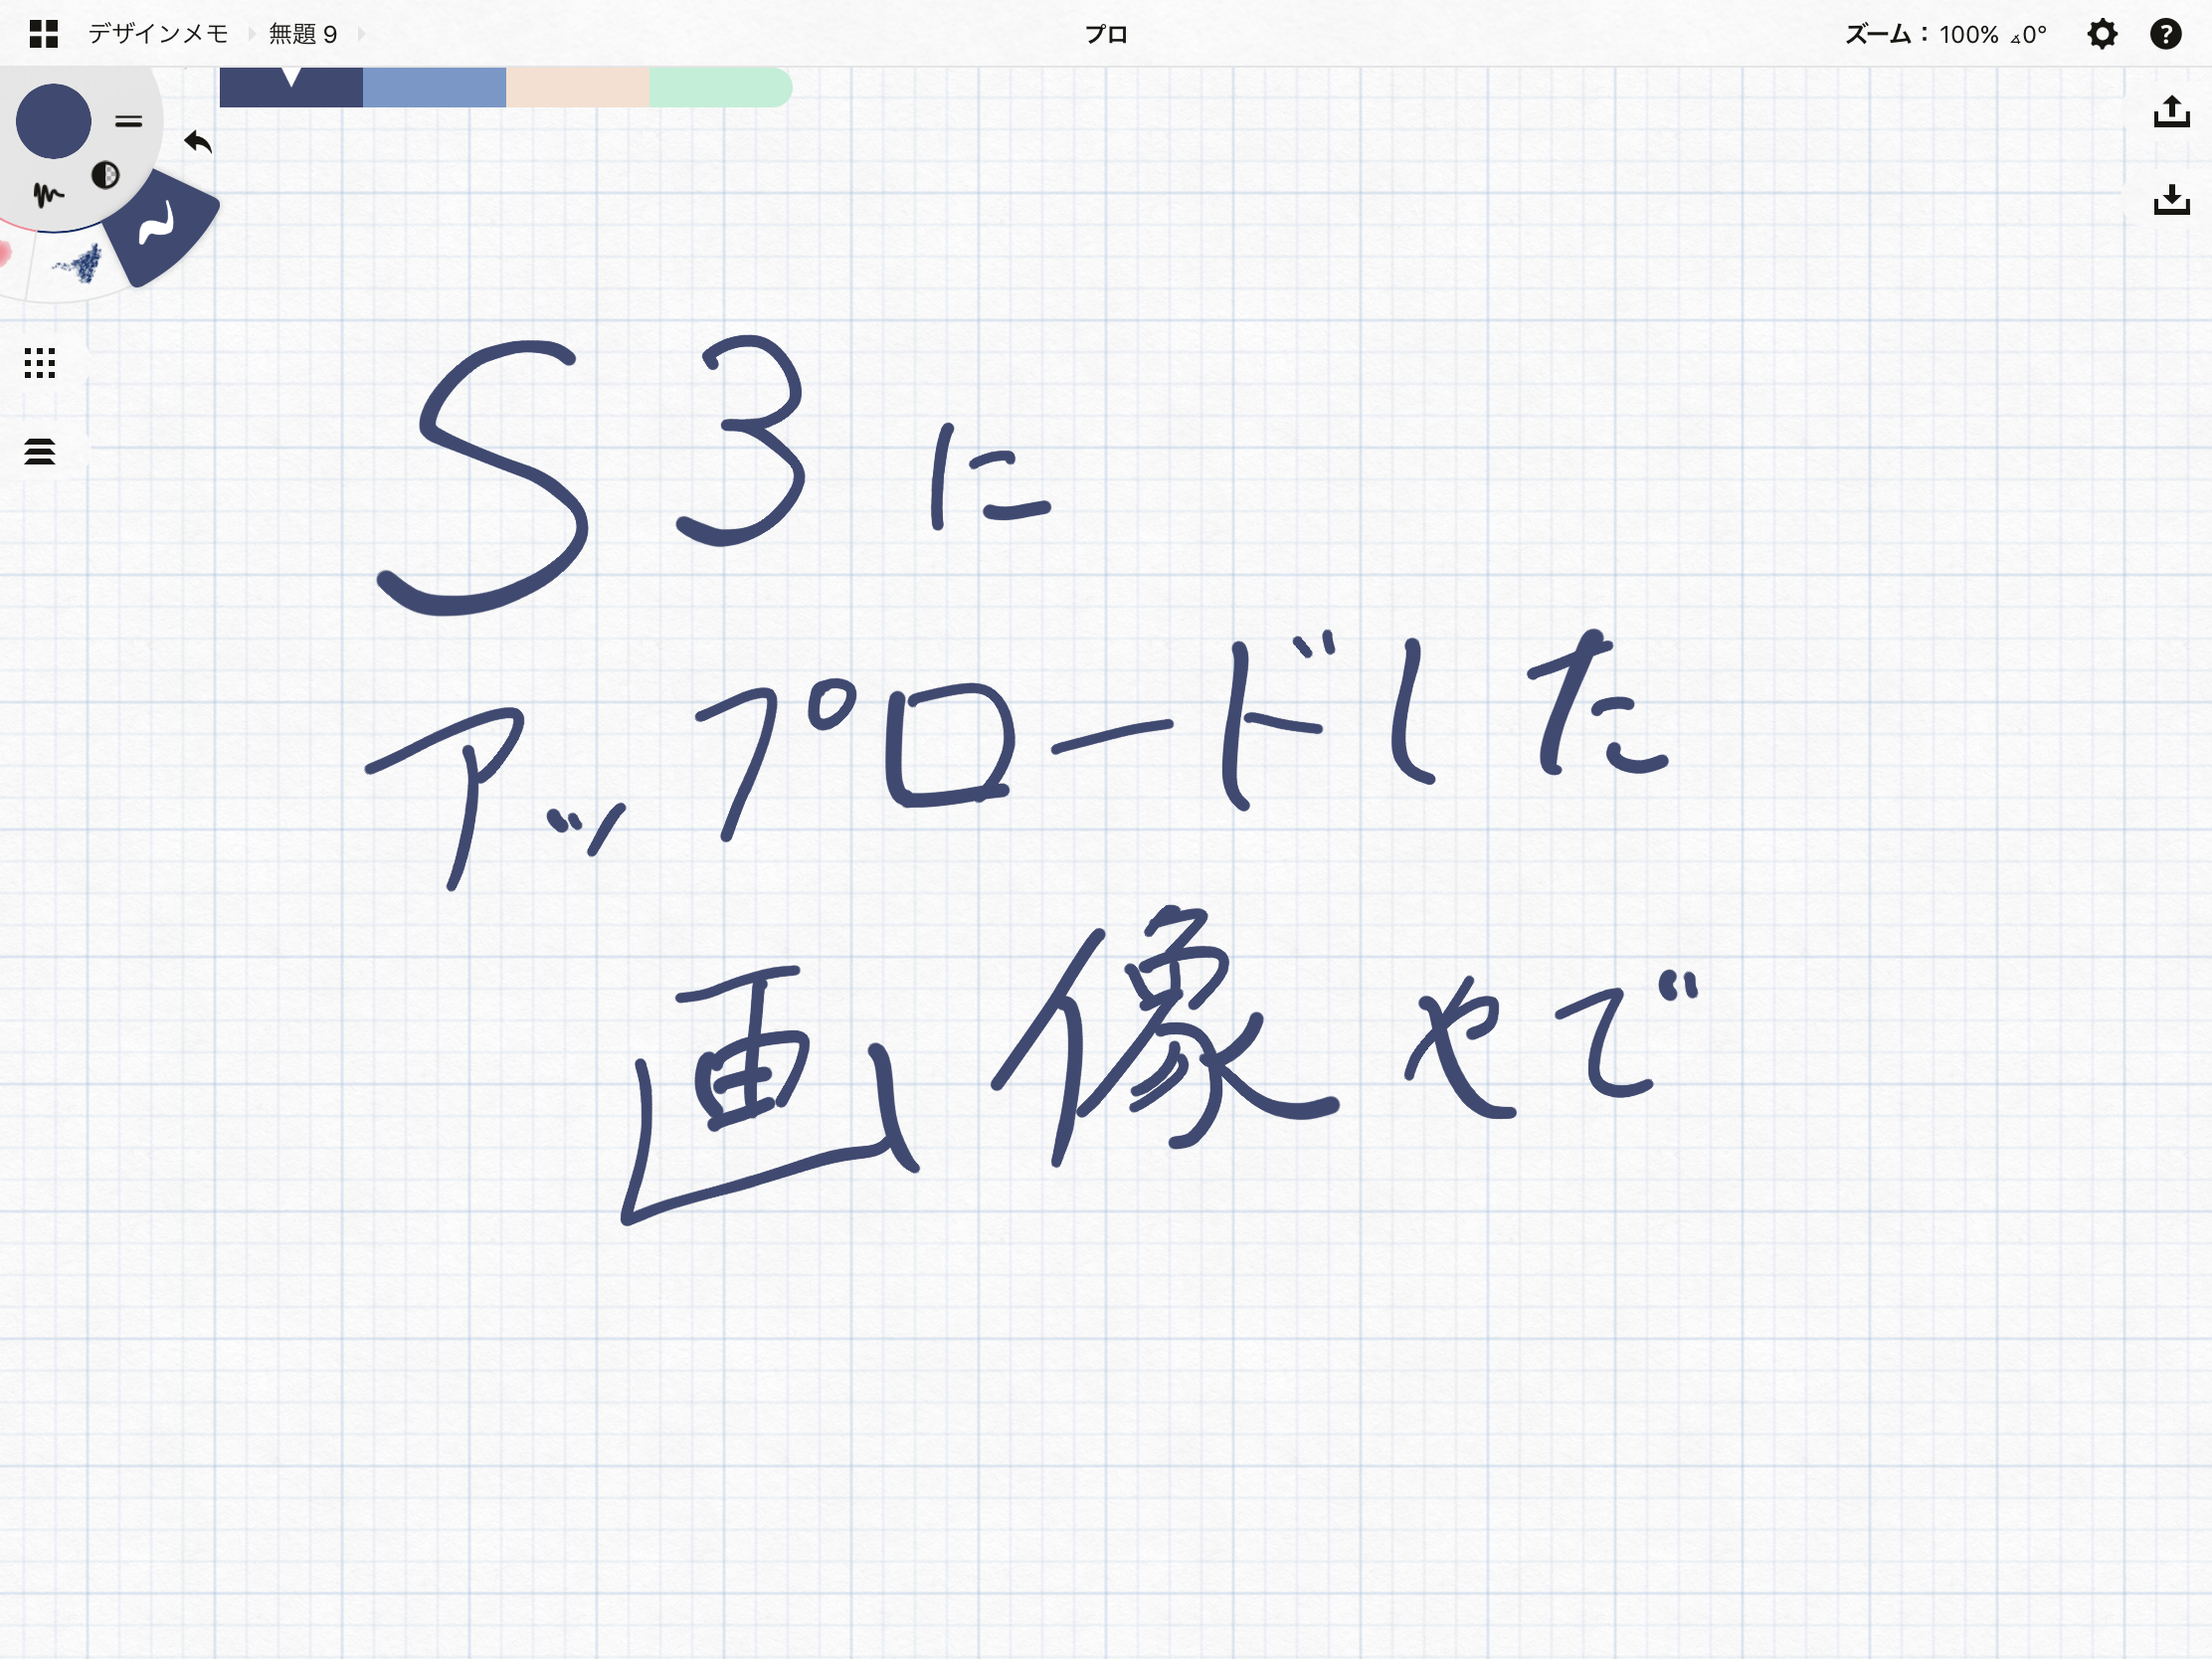 デザインメモ 無題 9 プロ ズーム：100% ⦨0°
S3に
アップロードした
画像やで